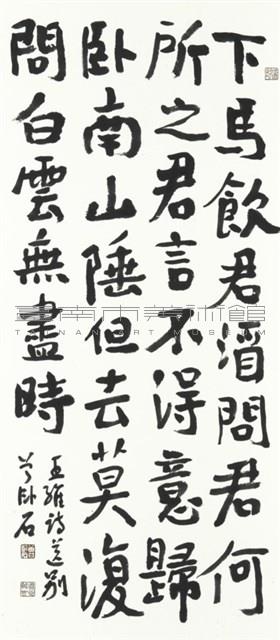 下馬飲君酒問君何
所之君言不得意歸
卧南山陲但去莫復
問白雲無盡時
王維詩送別
卧石
臺南市美術館
TAINAN ART MUSEUM